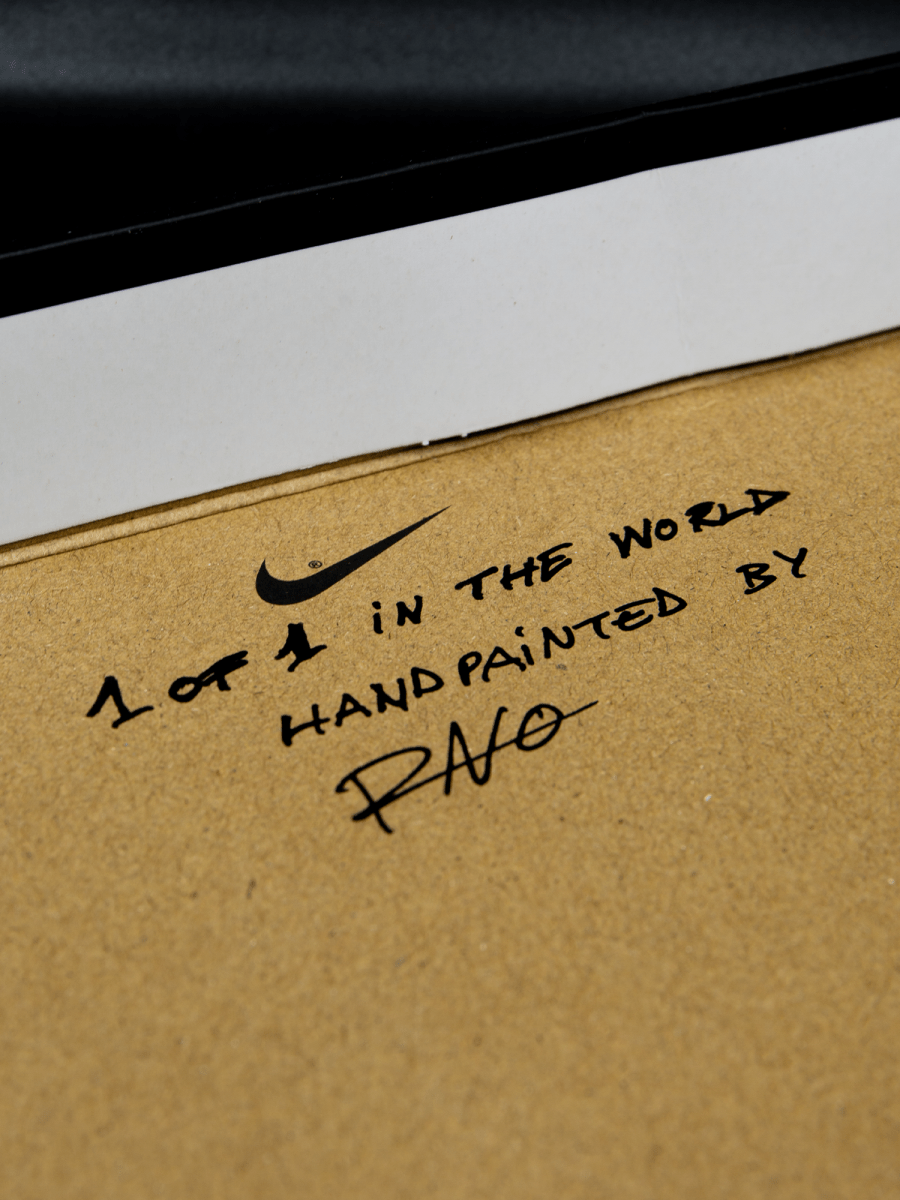 ®
1 OF 1 iN THE WORLD
HANDPAiNTED BY
RNO